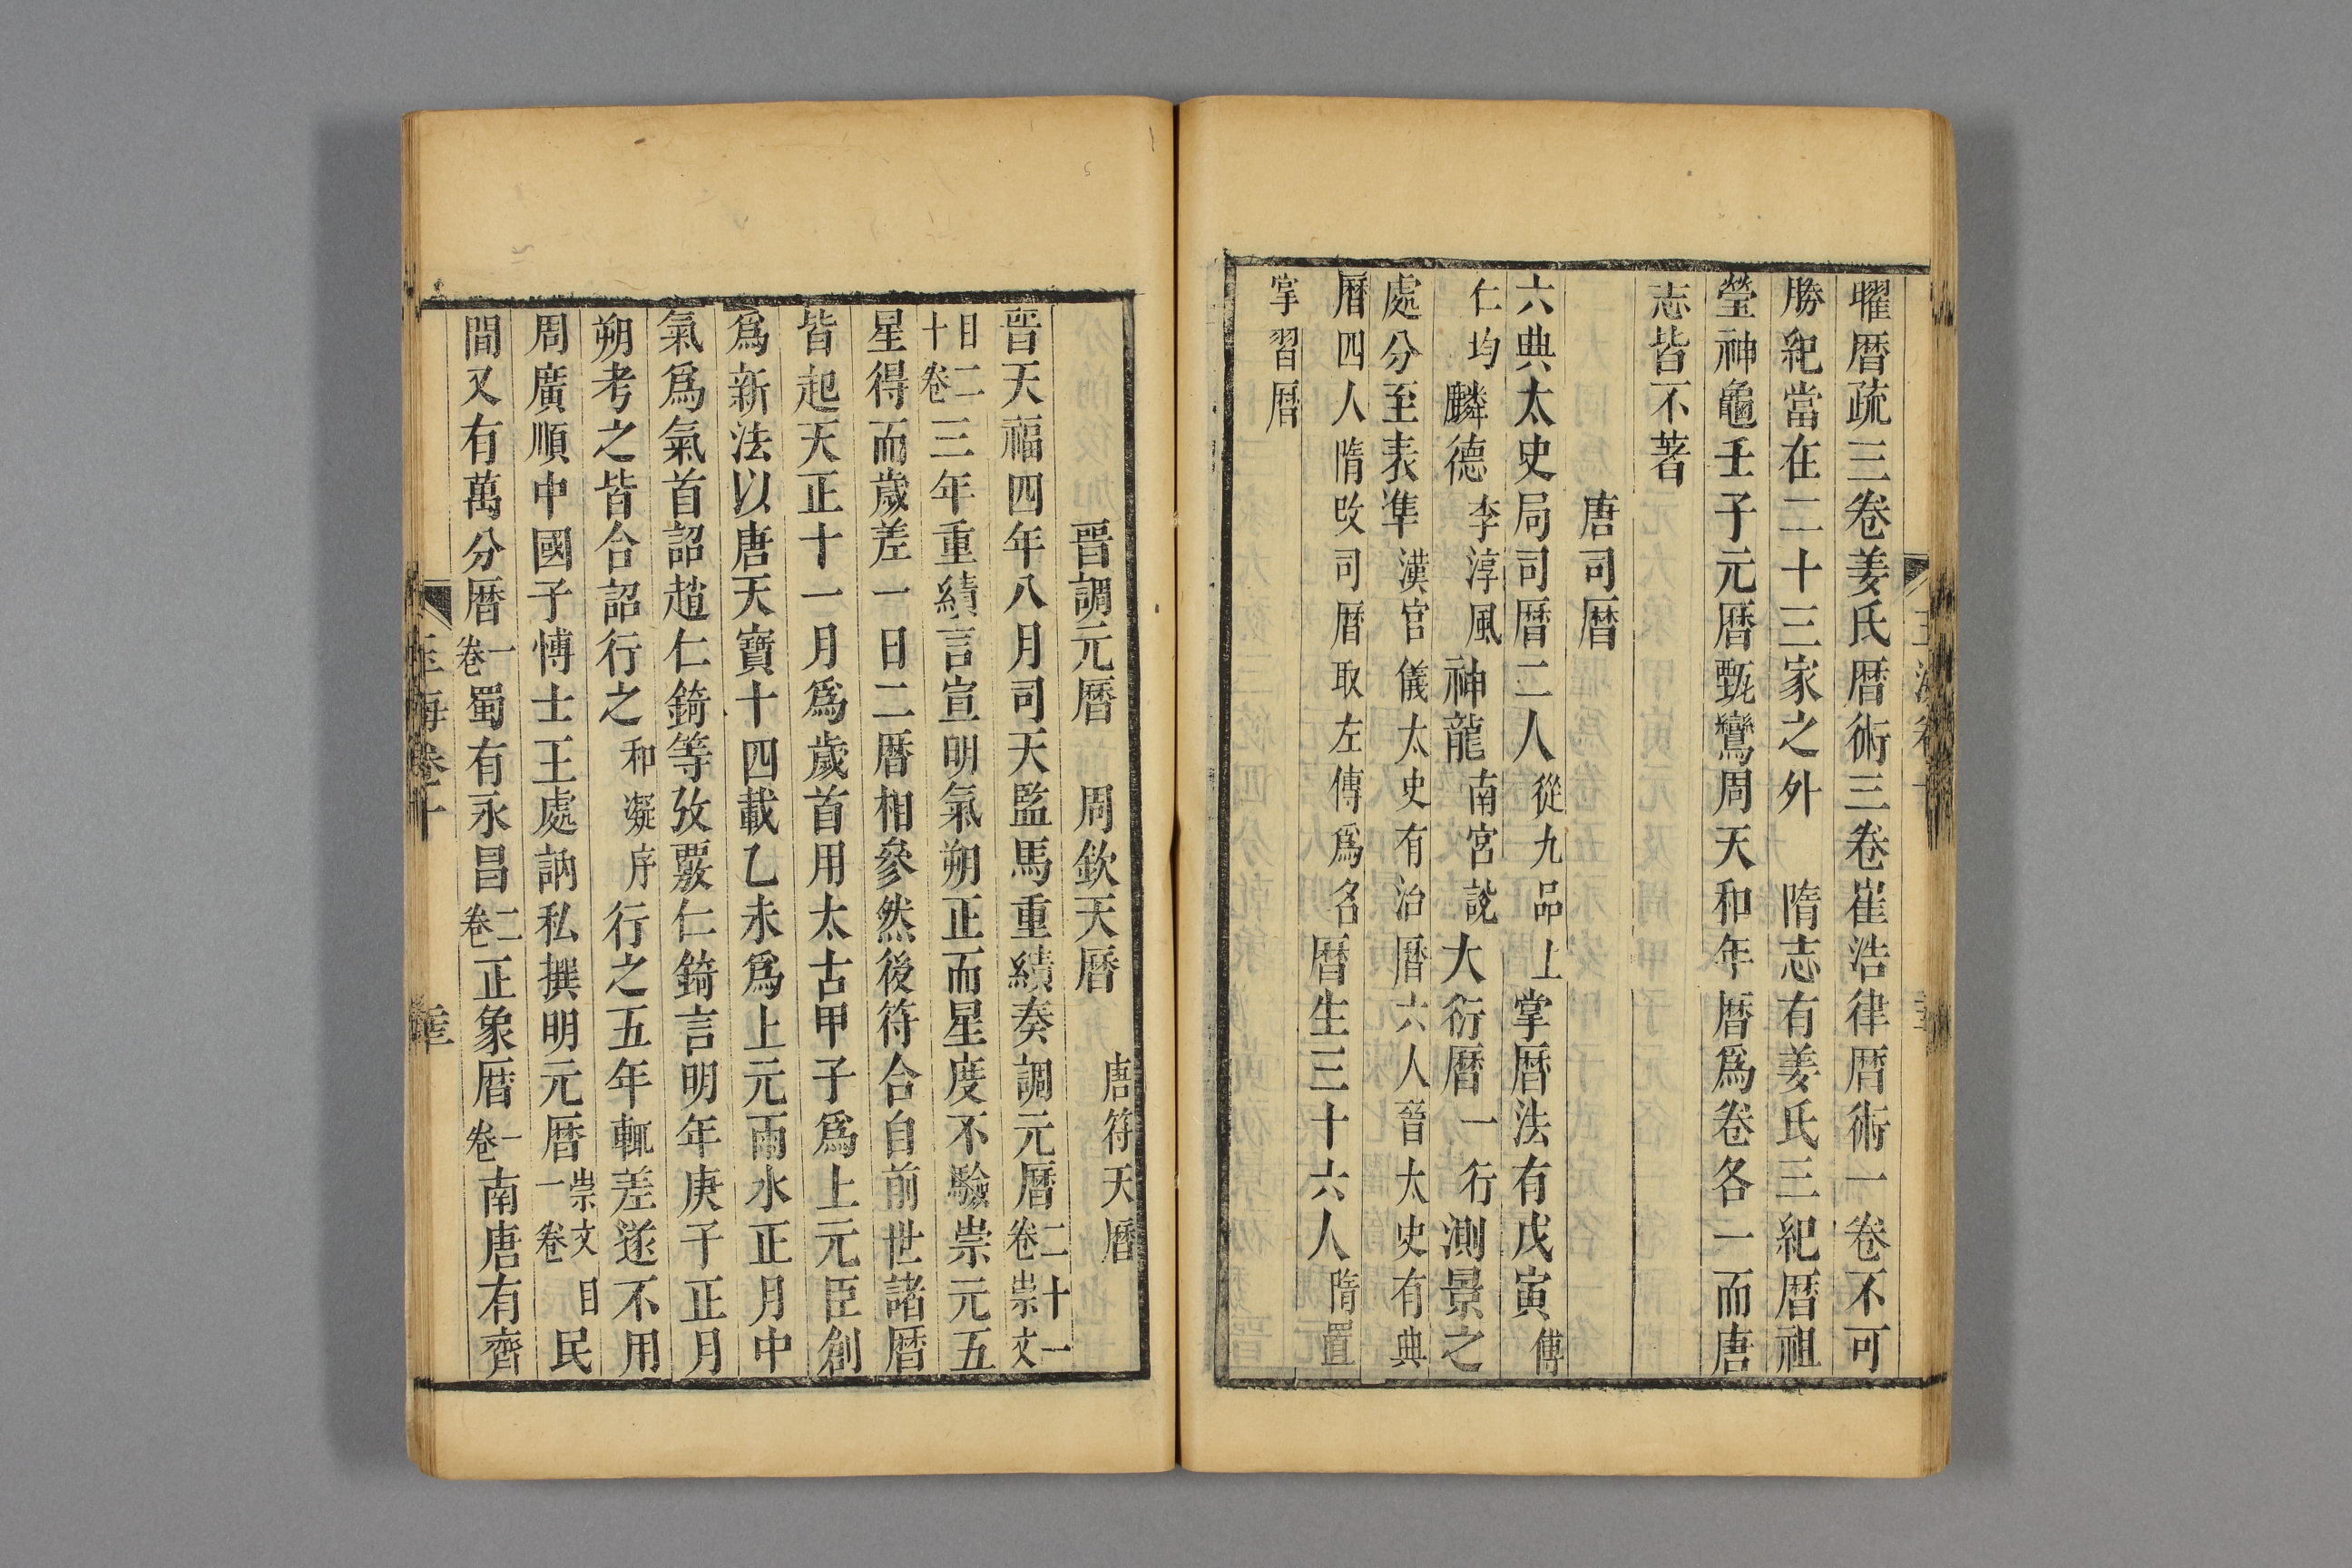 曜曆疏三卷姜氏曆術三卷崔浩律曆術一卷不可
勝紀當在二十三家之外　隋志有姜氏三紀曆祖
瑩神龜壬子元曆甄鸞周天和年曆爲卷各一而唐
志皆不著
唐司曆
六典太史局司曆二人從九品上掌曆法有戊寅傅
仁均麟德李淳風神龍南宮說大衍曆一行測景之
處分至表準漢官儀太史有治曆六人晉太史有典
曆四人隋改司曆取左傳爲名曆生三十六人隋置
掌習曆
晉調元曆　周欽天曆　唐符天曆
晉天福四年八月司天監馬重績奏調元曆二十一卷崇文
目二十卷三年重績言宣明氣朔正而星度不驗崇元五
星得而歲差一日二曆相參然後符合自前世諸曆
皆起天正十一月爲歲首用太古甲子爲上元臣創
爲新法以唐天寶十四載乙未爲上元雨水正月中
氣爲氣首詔趙仁錡等攷覈仁錡言明年庚子正月
朔考之皆合詔行之和凝序行之五年輒差遂不用
周廣順中國子博士王處訥私撰明元曆崇文目一卷民
間又有萬分曆一卷蜀有永昌二卷正象曆一卷南唐有齊
玉海卷十